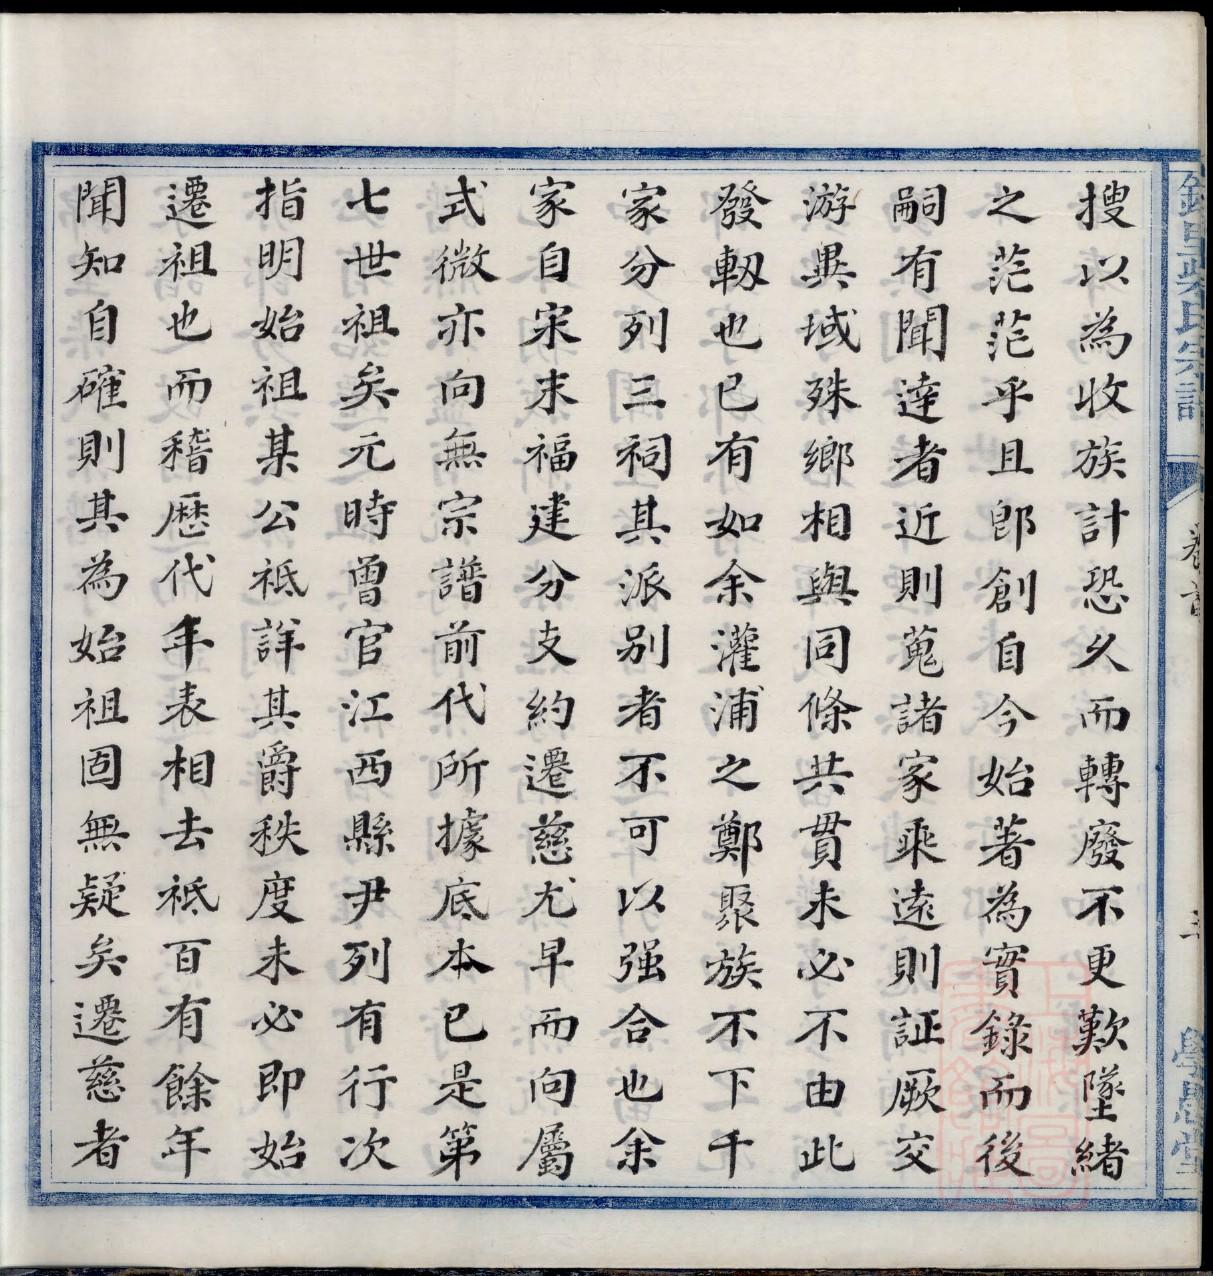 搜以為收族計恐久而轉廢不更歎墜緒
之茫茫乎且郎創自今始著為實錄而後
嗣有聞達者近則蒐諸家乘遠則証厥交
游異域殊鄉相與同條共貫未必不由此
發軔也已有如余灌浦之鄭聚族不下千
家分列三祠其派別者不可以强合也余
家自宋末福建分支約遷慈尤早而向屬
式微亦向無宗譜前代所據底本已是第
七世祖矣元時曾官江西縣尹列有行次
指明始祖某公祗詳其爵秩度未必即始
遷祖也而稽歷代年表相去祗百有餘年
聞知自確則其為始祖固無疑矣遷慈者
氏宗譜
卷首
三
學思堂